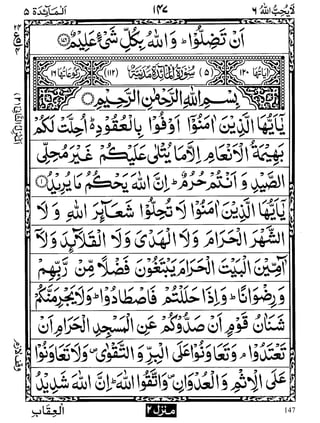 لَا يُحِبُّ اللهُ ٦ ١٤٧ اَلْمَائِدَة ٥
اَنْ تَضِلُّوْا ؕ وَ اللهُ بِكُلِّ شَیْءٍ عَلِیْمٌ ﴿۱۷۶﴾
اٰیَاتُهَا ١٢٠ (٥) سُوْرَةُ الْمَآئِدَةِ مَدَنِیَّةٌ (١١٢) رُكُوْعَاتُهَا ١٦
بِسْمِ اللهِ الرَّحْمٰنِ الرَّحِیْمِ
یٰۤاَیُّهَا الَّذِیْنَ اٰمَنُوْۤا اَوْفُوْا بِالْعُقُوْدِ ؕ اُحِلَّتْ لَكُمْ
بَهِیْمَةُ الْاَنْعَامِ اِلَّا مَا یُتْلٰى عَلَیْكُمْ غَیْرَ مُحِلِّی
الصَّیْدِ وَ اَنْتُمْ حُرُمٌ ؕ اِنَّ اللهَ یَحْكُمُ مَا یُرِیْدُ ﴿۱﴾
یٰۤاَیُّهَا الَّذِیْنَ اٰمَنُوْا لَا تُحِلُّوْا شَعَآىِٕرَ اللهِ وَ لَا
الشَّهْرَ الْحَرَامَ وَ لَا الْهَدْیَ وَ لَا الْقَلَآىِٕدَ وَ لَاۤ
آٰمِّیْنَ الْبَیْتَ الْحَرَامَ یَبْتَغُوْنَ فَضْلًا مِّنْ رَّبِّهِمْ
وَ رِضْوَانًا ؕ وَ اِذَا حَلَلْتُمْ فَاصْطَادُوْا ؕ وَ لَا یَجْرِمَنَّكُمْ
شَنَاٰنُ قَوْمٍ اَنْ صَدُّوْكُمْ عَنِ الْمَسْجِدِ الْحَرَامِ اَنْ
تَعْتَدُوْا ۘ وَ تَعَاوَنُوْا عَلَى الْبِرِّ وَ التَّقْوٰى ۪ وَ لَا تَعَاوَنُوْا
عَلَى الْاِثْمِ وَ الْعُدْوَانِ ۪ وَ اتَّقُوا اللهَ ؕ اِنَّ اللهَ شَدِیْدُ
الْعِقَابِ
منزل ٢
147